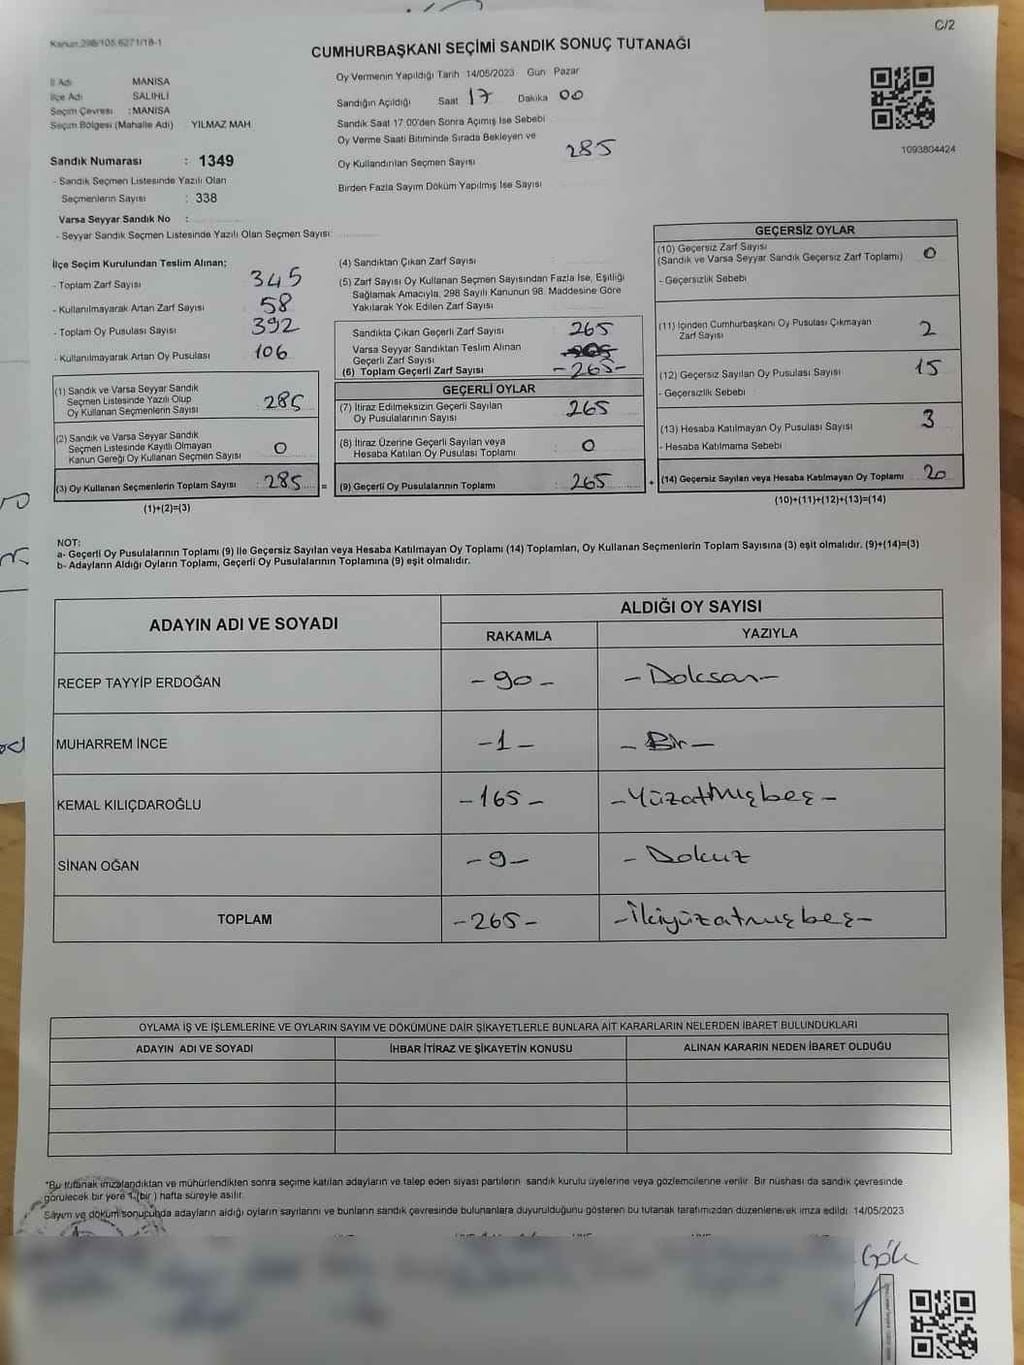 C/2
Kanun:298/105,6271/18-1
CUMHURBAŞKANI SEÇİMİ SANDIK SONUÇ TUTANAĞI
İl Adı MANİSA
İlçe Adı SALİHLİ
Seçim Çevresi : MANİSA
Seçim Bölgesi (Mahalle Adı) YILMAZ MAH
Sandık Numarası : 1349
- Sandık Seçmen Listesinde Yazılı Olan
Seçmenlerin Sayısı : 338
Varsa Seyyar Sandık No :
- Seyyar Sandık Seçmen Listesinde Yazılı Olan Seçmen Sayısı:
Oy Vermenin Yapıldığı Tarih 14/05/2023 Gün Pazar
Sandığın Açıldığı Saat 17 Dakika 00
Sandık Saat 17:00'den Sonra Açımış İse Sebebi
Oy Verme Saati Bitiminde Sırada Bekleyen ve
Oy Kullandırılan Seçmen Sayısı 285
Birden Fazla Sayım Döküm Yapılmış İse Sayısı
1093804424
İlçe Seçim Kurulundan Teslim Alınan;
- Toplam Zarf Sayısı 345
- Kullanılmayarak Artan Zarf Sayısı 58
- Toplam Oy Pusulası Sayısı 392
- Kullanılmayarak Artan Oy Pusulası 106
(1) Sandık ve Varsa Seyyar Sandık
Seçmen Listesinde Yazılı Olup
Oy Kullanan Seçmenlerin Sayısı 285
(2) Sandık ve Varsa Seyyar Sandık
Seçmen Listesinde Kayıtlı Olmayan
Kanun Gereği Oy Kullanan Seçmen Sayısı 0
(3) Oy Kullanan Seçmenlerin Toplam Sayısı : 285 =
(1)+(2)=(3)
(4) Sandıktan Çıkan Zarf Sayısı
(5) Zarf Sayısı Oy Kullanan Seçmen Sayısından Fazla İse, Eşitliği
Sağlamak Amacıyla, 298 Sayılı Kanunun 98. Maddesine Göre
Yakılarak Yok Edilen Zarf Sayısı
Sandıkta Çıkan Geçerli Zarf Sayısı 265
Varsa Seyyar Sandıktan Teslim Alınan
Geçerli Zarf Sayısı
(6) Toplam Geçerli Zarf Sayısı -265-
GEÇERLİ OYLAR
(7) İtiraz Edilmeksizin Geçerli Sayılan
Oy Pusulalarının Sayısı 265
(8) İtiraz Üzerine Geçerli Sayılan veya
Hesaba Katılan Oy Pusulası Toplamı : 0
(9) Geçerli Oy Pusulalarının Toplamı : 265 +
GEÇERSİZ OYLAR
(10) Geçersiz Zarf Sayısı
(Sandık ve Varsa Seyyar Sandık Geçersiz Zarf Toplamı) 0
- Geçersizlik Sebebi
(11) İçinden Cumhurbaşkanı Oy Pusulası Çıkmayan
Zarf Sayısı 2
(12) Geçersiz Sayılan Oy Pusulası Sayısı 15
- Geçersizlik Sebebi
(13) Hesaba Katılmayan Oy Pusulası Sayısı 3
- Hesaba Katılmama Sebebi
(14) Geçersiz Sayılan veya Hesaba Katılmayan Oy Toplamı 20
(10)+(11)+(12)+(13)=(14)
NOT:
a- Geçerli Oy Pusulalarının Toplamı (9) ile Geçersiz Sayılan veya Hesaba Katılmayan Oy Toplamı (14) Toplamları, Oy Kullanan Seçmenlerin Toplam Sayısına (3) eşit olmalıdır. (9)+(14)=(3)
b- Adayların Aldığı Oyların Toplamı, Geçerli Oy Pusulalarının Toplamına (9) eşit olmalıdır.
ADAYIN ADI VE SOYADI ALDIĞI OY SAYISI
RAKAMLA YAZIYLA
RECEP TAYYİP ERDOĞAN -90- -Doksan-
MUHARREM İNCE -1- -Bir-
KEMAL KILIÇDAROĞLU -165- -Yüzatmışbeş-
SİNAN OĞAN -9- - Dokuz
TOPLAM -265- -İkiyüzatmışbeş-
OYLAMA İŞ VE İŞLEMLERİNE VE OYLARIN SAYIM VE DÖKÜMÜNE DAİR ŞİKAYETLERLE BUNLARA AİT KARARLARIN NELERDEN İBARET BULUNDUKLARI
ADAYIN ADI VE SOYADI İHBAR İTİRAZ VE ŞİKAYETİN KONUSU ALINAN KARARIN NEDEN İBARET OLDUĞU
*Bu tutanak imzalandıktan ve mühürlendikten sonra seçime katılan adayların ve talep eden siyasi partilerin sandık kurulu üyelerine veya gözlemcilerine verilir. Bir nüshası da sandık çevresinde
görülecek bir yere 1 (bir) hafta süreyle asılır.
Sayım ve döküm sonucunda adayların aldığı oyların sayılarını ve bunların sandık çevresinde bulunanlara duyurulduğunu gösteren bu tutanak tarafımızdan düzenlenerek imza edildi. 14/05/2023